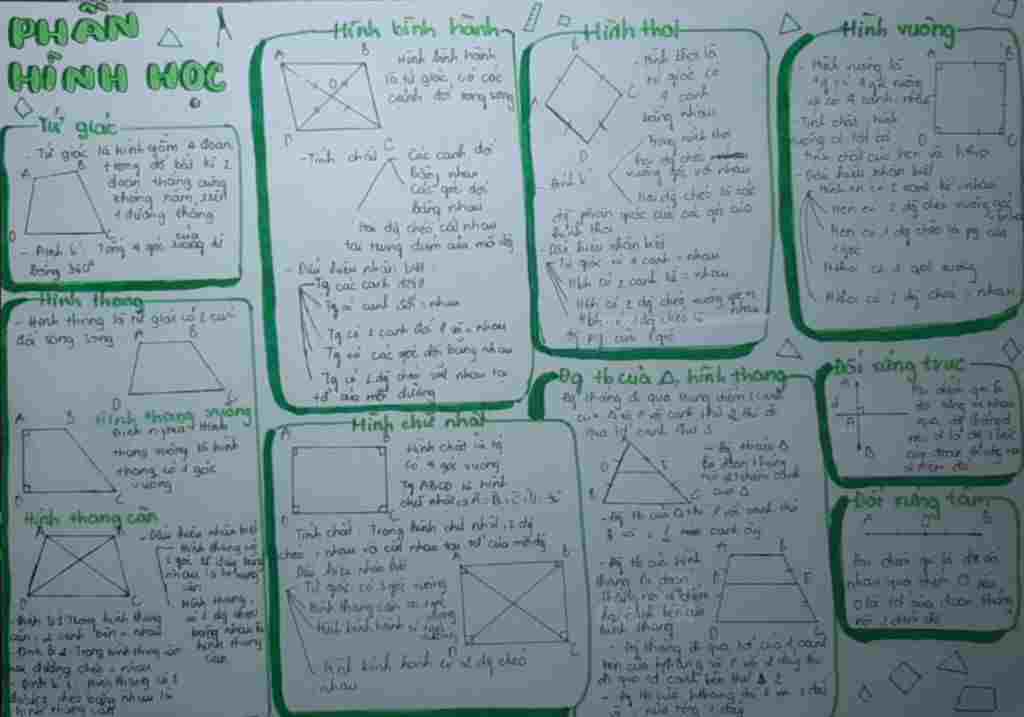 PHẦN
HÌNH HỌC
Tứ giác
- Tứ giác là hình gồm 4 đoạn
trong đó bất kì 2
đoạn thẳng cũng
không nằm trên
1 đường thẳng
A
B
D
C
- Định lí: Tổng 4 góc của tứ
bằng 360°
Hình thang
- Hình thang là tứ giác có 2 cạnh
đối song song
A
B
D
C
Hình thang vuông
A
B
D
C
Định nghĩa: Hình
thang vuông là hình
thang có 1 góc
vuông
Hình thang cân
A
B
D
C
- Dấu hiệu nhận biết
Hình thang có
2 góc kề đáy bằng
nhau là hthang
cân
Hình thang
có 2 đg chéo
bằng nhau là
hình thang
cân
- Định lí 1: Trong hình thang
cân, 2 cạnh bên = nhau
- Định lí 2: Trong hình thang cân
hai đường chéo = nhau
- Định lí 3: Hình thang có 2
đường chéo bằng nhau là
hình thang cân
Hình bình hành
A
B
O
D
C
Hình bình hành
là tứ giác có các
cạnh đối song song
- Tính chất
Các cạnh đối
bằng nhau
Các góc đối
bằng nhau
Hai đg chéo cắt nhau
tại trung điểm của mỗi đg
- Dấu hiệu nhận biết:
Tg các cạnh đối //
Tg có cạnh đối = nhau
Tg có 2 cạnh đối // và = nhau
Tg có các góc đối bằng nhau
Tg có 2 đg chéo cắt nhau tại
tđ của mỗi đường
Hình chữ nhật
A
B
D
C
Hình chữ nhật là tg
có 4 góc vuông
Tg ABCD là hình
chữ nhật
Tính chất: Trong hình chữ nhật, 2 đg
chéo = nhau và cắt nhau tại tđ của mỗi đg
Dấu hiệu nhận biết
Tứ giác có 3 góc vuông
Hình thang cân có 1 góc
vuông
Hình bình hành có 1 góc
vuông
Hình bình hành có 2 đg chéo
nhau
A
B
D
C
Hình thoi
A
C
D
Hình thoi là
tứ giác có
4 cạnh
bằng nhau
Trong hình thoi
hai đg chéo
vuông góc với nhau
- Định lí
Hai đg chéo là các
đg phân giác của các góc của
hình thoi
- Dấu hiệu nhận biết
Tứ giác có 4 cạnh = nhau
Hbh có 2 cạnh kề = nhau
Hbh có 2 đg chéo vuông góc
Hbh có 1 đg chéo là
đg pg của 1 góc
Hình vuông
A
B
D
C
- Hình vuông là
tg có 4 góc vuông
và có 4 cạnh = nhau
- Tính chất: hình
vuông có tất cả
tính chất của hcn và hthoi
- Dấu hiệu nhận biết
Hcn có 2 cạnh kề = nhau
Hcn có 2 đg chéo vuông góc
Hcn có 1 đg chéo là pg của
1 góc
Hthoi có 1 góc vuông
Hthoi có 2 đg chéo = nhau
Đg tb của Δ, hình thang
Đg thẳng đi qua trung điểm 1 cạnh
của Δ và // với cạnh thứ 2 thì đi
qua tđ cạnh thứ 3
A
D
E
B
C
- Đg tb của Δ
là đoạn thẳng
nối tđ 2 cạnh
của Δ
- Đg tb của Δ thì // với cạnh thứ
3 và = 1/2 cạnh ấy
- Đg tb của hình
thang là đoạn
thẳng nối tđ
2 cạnh bên của
hình thang
A
B
E
D
C
- Đg thẳng đi qua tđ của 1 cạnh
bên của hthang và // với 2 đáy thì
đi qua tđ cạnh bên thứ 2
- Đg tb của hthang thì // với 2 đáy
và = nửa tổng 2 đáy
Đối xứng trục
d
A
B
Hai điểm gọi là
đối xứng với nhau
qua đg thẳng d
nếu d là đg trung trực
của đoạn thẳng nối
2 điểm đó
Đối xứng tâm
A
O
B
Hai điểm gọi là đối xứng
nhau qua điểm O nếu
O là tđ của đoạn thẳng
nối 2 điểm đó